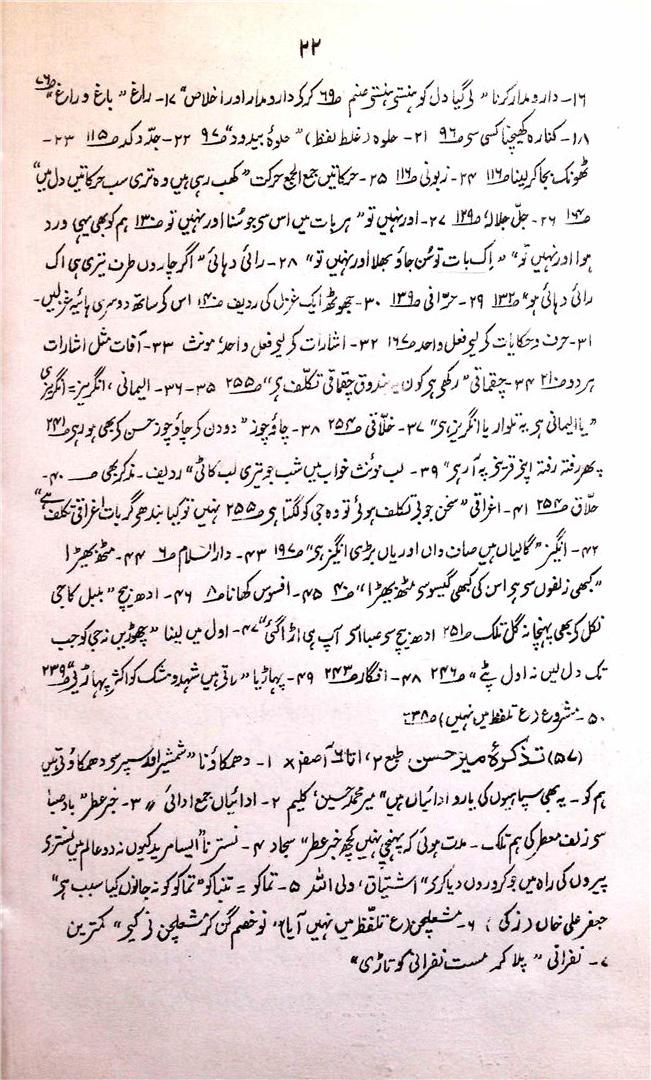 ۲۲
۱۶- دار و مدار کرنا "لی گیا دل کو ہنستی ہنستی صنم ص۶۹ کر کر دار و مدار اور اخلاص" ۱۷- راغ "باغ و راغ" ص۷۶
۱۸- کنارہ کھینچنا کسی سی ص۹۶ ۲۱- حلوہ (غلط لفظ) "حلوۂ بیدود" ص۹۷ ۲۲- جدّ و کد ص۱۱۵ ۲۳-
ٹھونک بجا کر لینا ص۱۱۶ ۲۴- زبونی ص۱۱۶ ۲۵- حرکاتیں جمع الجمع حرکت "کھب رہی ہیں وہ تری سب حرکاتیں دل میں"
ص۱۶۴ ۲۶- جلّ جلالہٗ ص۱۲۹ ۲۷- اور نہیں تو "ہر بات میں اس سی جو سُنا اور نہیں تو ص۱۳۰ ہم کو بھی یہی ورد
ہوا اور نہیں تو" "اِک بات تو سُن جاؤ بھلا اور نہیں تو" ۲۸- رائی دہائی "اگر چاروں طرف تیری ہی اک
رائی دہائی ہو" ص۱۳۲ ۲۹- حرّافی ص۱۳۹ ۳۰- جھوٹھ ایک غزل کی ردیف ص۱۴۰ اس کے ساتھ دوسری ہائیہ غزلیں-
۳۱- حرف و حکایات کر لیی فعل واحد ص۱۶۷ ۳۲- اشارات کر لیی فعل واحد، مونث ۳۳- آفات مثل اشارات
ہر دو ص۲۱۰ ۳۴- چقماقی "رکھی ہر کون یہ بندوق چقماقی تکلّف ہی" ص۲۵۵ ۳۵-۳۶- الیمانی، انگریز = انگریزی
"یا الیمانی ہر یہ تلوار یا انگریز ہی" ۳۷- خلّاقی ص۲۵۴ ۳۸- چاؤچوز "دو دن کر چاؤ چوز حسن کر بھی ہو رہی ص۲۴۱
پھر رفتہ رفتہ اپنی قرینی پہ آ رہی" ۳۹- لب مونث خواب میں شب جو تری لب کاٹی" ردیف- مذکر بھی ص ۴۰-
حلّاق ص۲۵۴ ۴۱- اغراقی "سخن جو بی تکلف ہوئی تو وہ جی کو لگتا ہی ص۲۵۵ نہیں تو کیا بندھی گر بات اغراقی تکلف ہے"
۴۲- انگیز "گالیاں ہیں صاف واں اور یاں بڑی انگیز ہی" ص۱۹۷ ۴۳- دارالسلام ص۶ ۴۴- مٹھ بھیڑا
"کبھی زلفوں سی ہر اس کی کبھی گیسو سی مٹھ بھیڑا" ص۴۰ ۴۵- افسوس کھانا ص۸ ۴۶- ادھ بیچ "بلبل کا جی
نکل کر بھی پہنچا نہ گل تلک ص۲۵۱ ادھ بیچ سی صبا اسی آپ ہی اڑا گئی" ۴۷- اول میں لینا "چھوڑیں نہ جی کو جب
تک دل لیں نہ اول پٹے" ص۲۴۶ ۴۸- افگار ص۲۴۳ ۴۹- پہاڑیا "باتی ہیں شہد و مشک کو اکثر پہاڑیی" ص۲۳۹
۵۰- مشروع (ع تلفظ میں نہیں) ص۳۸
(۵۷) تذکرۂ میر حسن طبع ۲، اتا ۶ آصفر × ۱- دھمکاؤنا "شمشیر اور سپر سی دھمکاؤتی ہیں
ہم کو- یہ بھی سپاہیوں کی یارو ادائیاں ہیں" میر محمد حسین، کلیم ۲- ادائیاں جمع ادائی // ۳- خبر عطر "باد صبا
سی زلف معطر کی ہم تلک- مدت ہوئی کہ پہنچی نہیں کچھ خبر عطر" سجاد ۴- نسترنا "ایسا مرید کیوں نہ دو عالم میں نستری
پیروں کی راہ میں جو کروروں دیا کری" اشتیاق، ولی اللہ ۵- تماکو = تنباکو "تماکو کو نہ جانوں کیا سبب ہی"
جعفر علی خاں (زکی)، ۶- مشعلچن (ع تلفّظ میں نہیں آیا) "تو خصم گن کر مشعلچن نی کیی" کمترین
۷- نفرانی "پلا کر مست نفرانی کو تاڑی"